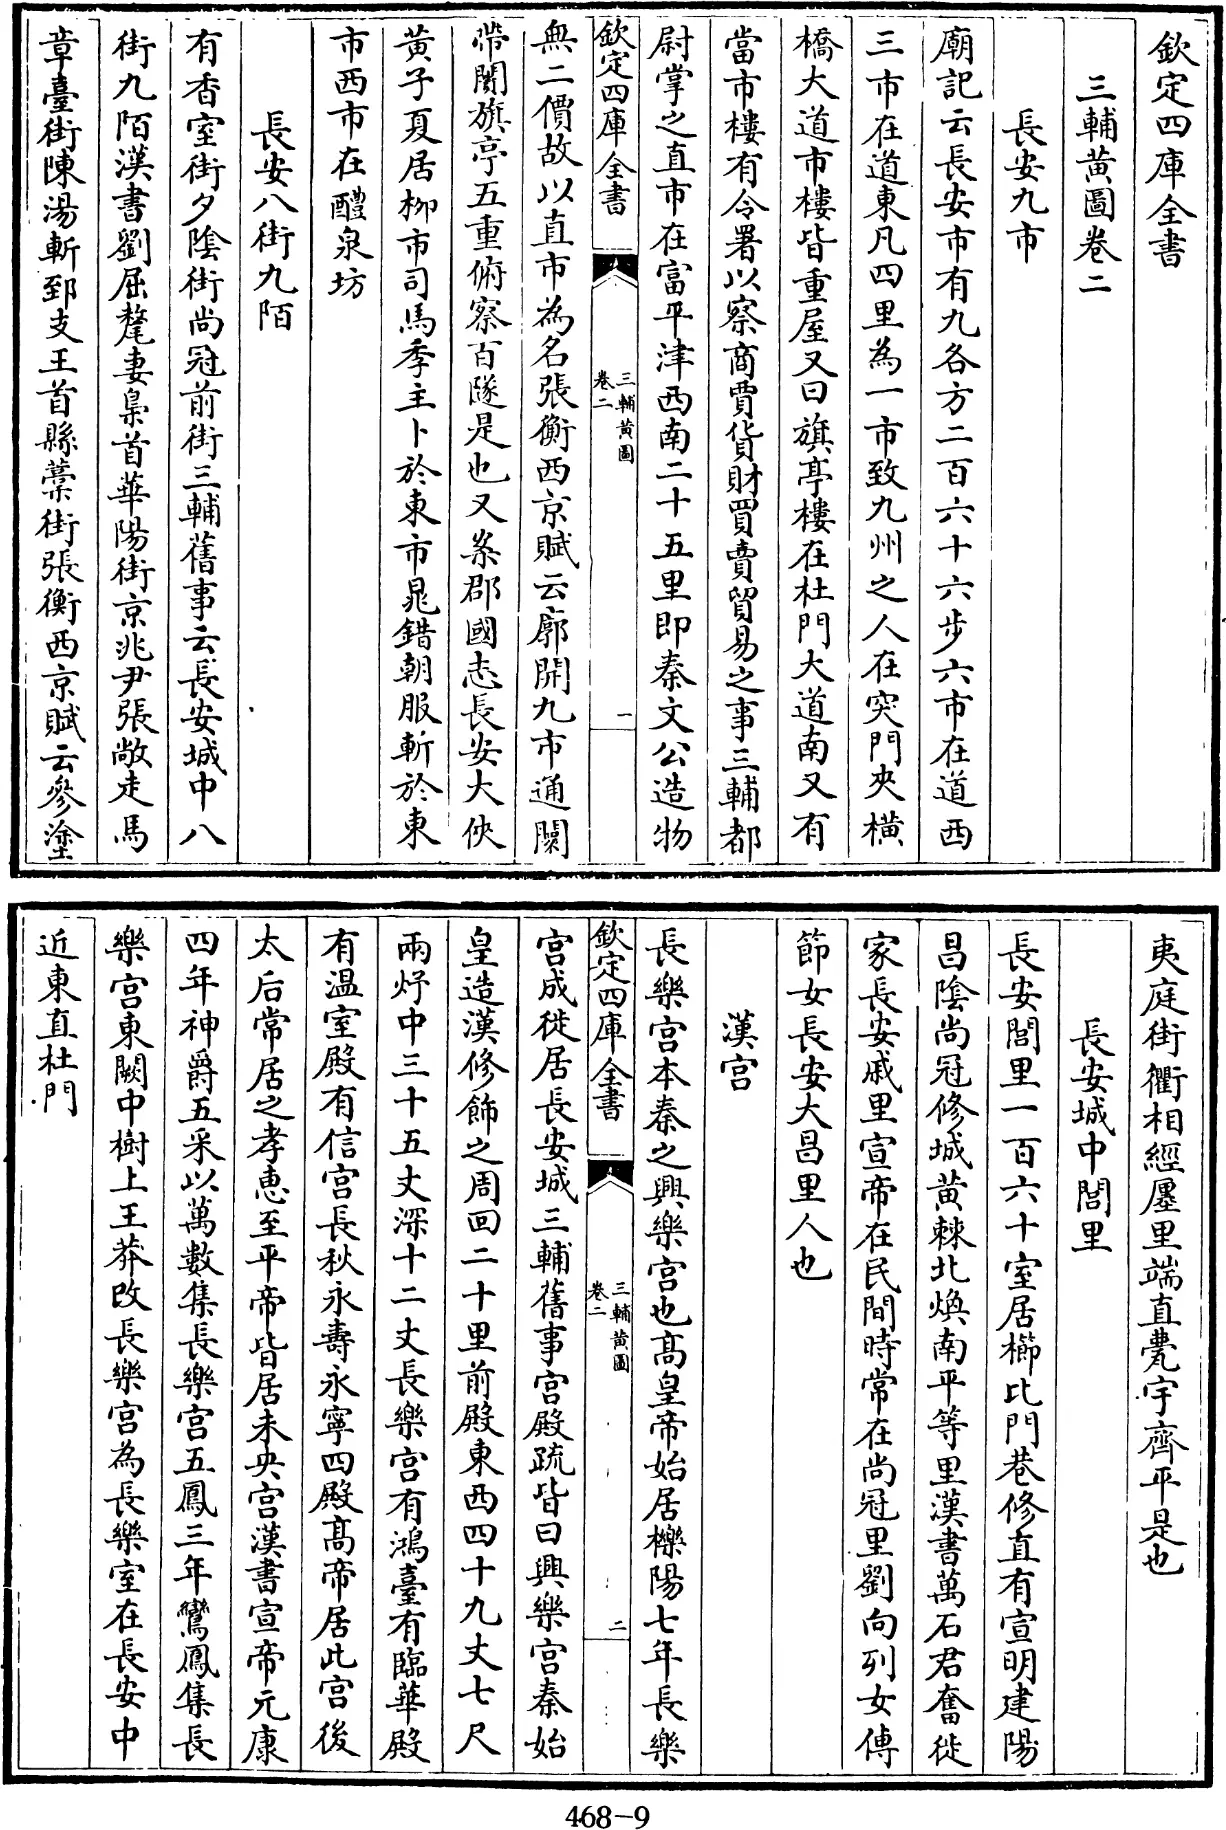 欽定四庫全書
三輔黄圖卷二
長安九市
廟記云長安市有九各方二百六十六步六市在道西
三市在道東凡四里為一市致九州之人在突門夾橫
橋大道市樓皆重屋又曰旗亭樓在杜門大道南又有
當市樓有令署以察商賈貨財買賣貿易之事三輔都
尉掌之直市在富平津西南二十五里即秦文公造物
欽定四庫全書
三輔黄圖
卷二
一
無二價故以直市為名張衡西京賦云廓開九市通闤
帶闠旗亭五重俯察百隧是也又案郡國志長安大俠
黄子夏居柳市司馬季主卜於東市晁錯朝服斬於東
市西市在醴泉坊
長安八街九陌
有香室街夕陰街尚冠前街三輔舊事云長安城中八
街九陌漢書劉屈氂妻梟首華陽街京兆尹張敞走馬
章臺街陳湯斬郅支王首縣藁街張衡西京賦云參塗
夷庭街衢相經廛里端直甍宇齊平是也
長安城中閭里
長安閭里一百六十室居櫛比門巷修直有宣明建陽
昌陰尚冠修城黄棘北煥南平等里漢書萬石君奮徙
家長安戚里宣帝在民間時常在尚冠里劉向列女傳
節女長安大昌里人也
漢宫
長樂宫本秦之興樂宫也髙皇帝始居櫟陽七年長樂
欽定四庫全書
三輔黄圖
卷二
二
宫成徙居長安城三輔舊事宫殿疏皆曰興樂宫秦始
皇造漢修飾之周回二十里前殿東西四十九丈七尺
兩杼中三十五丈深十二丈長樂宫有鴻臺有臨華殿
有温室殿有信宫長秋永壽永寧四殿髙帝居此宫後
太后常居之孝惠至平帝皆居未央宫漢書宣帝元康
四年神爵五采以萬數集長樂宫五鳳三年鸞鳳集長
樂宫東闕中樹上王莽改長樂宫為長樂室在長安中
近東直杜門
468-9